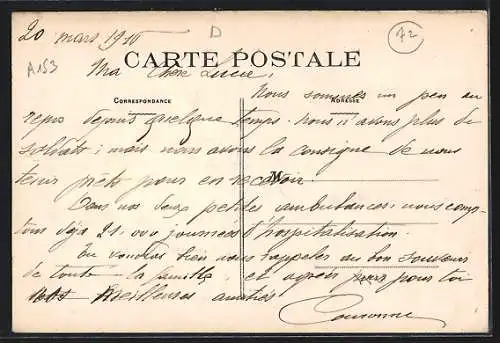 20 mars 1916
D
72
A153
CARTE POSTALE
Ma Chère Lucie,
CORRESPONDANCE
ADRESSE
Nous sommes un peu au
repos depuis quelque temps. Nous n'avons plus de
soldats ; mais nous avons la consigne de nous
tenir prêts pour en recevoir.
M
Dans nos deux petites ambulances, nous comp-
tons déjà 21.000 journées d'hospitalisation.
Tu voudras bien nous rappeler au bon souvenir
de toute la famille, et agréer pour toi
nos meilleures amitiés
Couronne